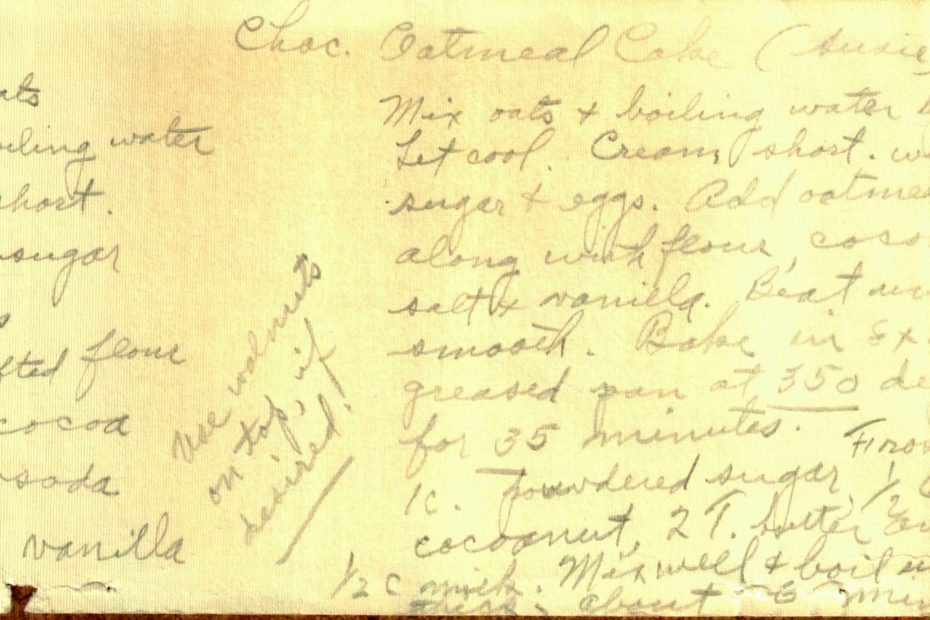 Choc. Oatmeal Cake (Susie
ats
oiling water
short.
sugar
fted flour
cocoa
soda
vanilla
Use walnuts
on top, if
desired!
Mix oats & boiling water
Let cool. Cream short. w
sugar & eggs. Add oatme
along with flour, coco
salt & vanilla. Beat un
smooth. Bake in 8x
greased pan at 350 de
for 35 minutes.
Fros
1c. powdered sugar, 1/2
cocoanut, 2 T. butter
1/2 c milk. Mix well & boil u
thick, about 3 min